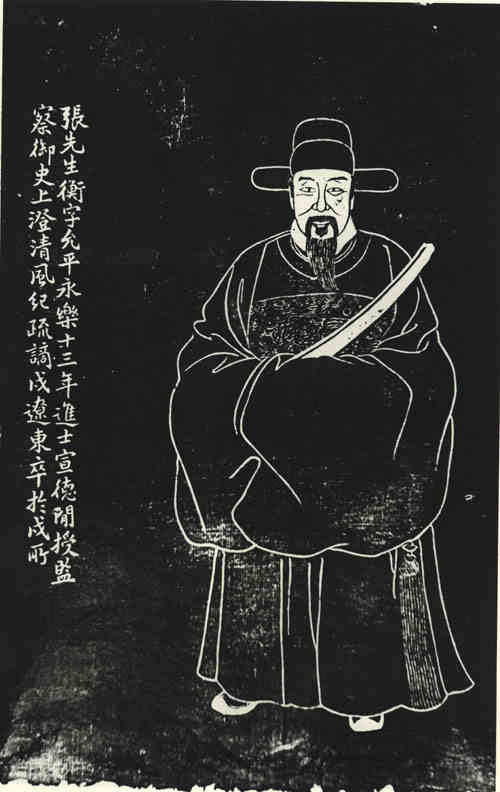 張先生衡字允平永樂十三年進士宣德間授監
察御史上澄清風紀疏謫戍遼東卒於戍所